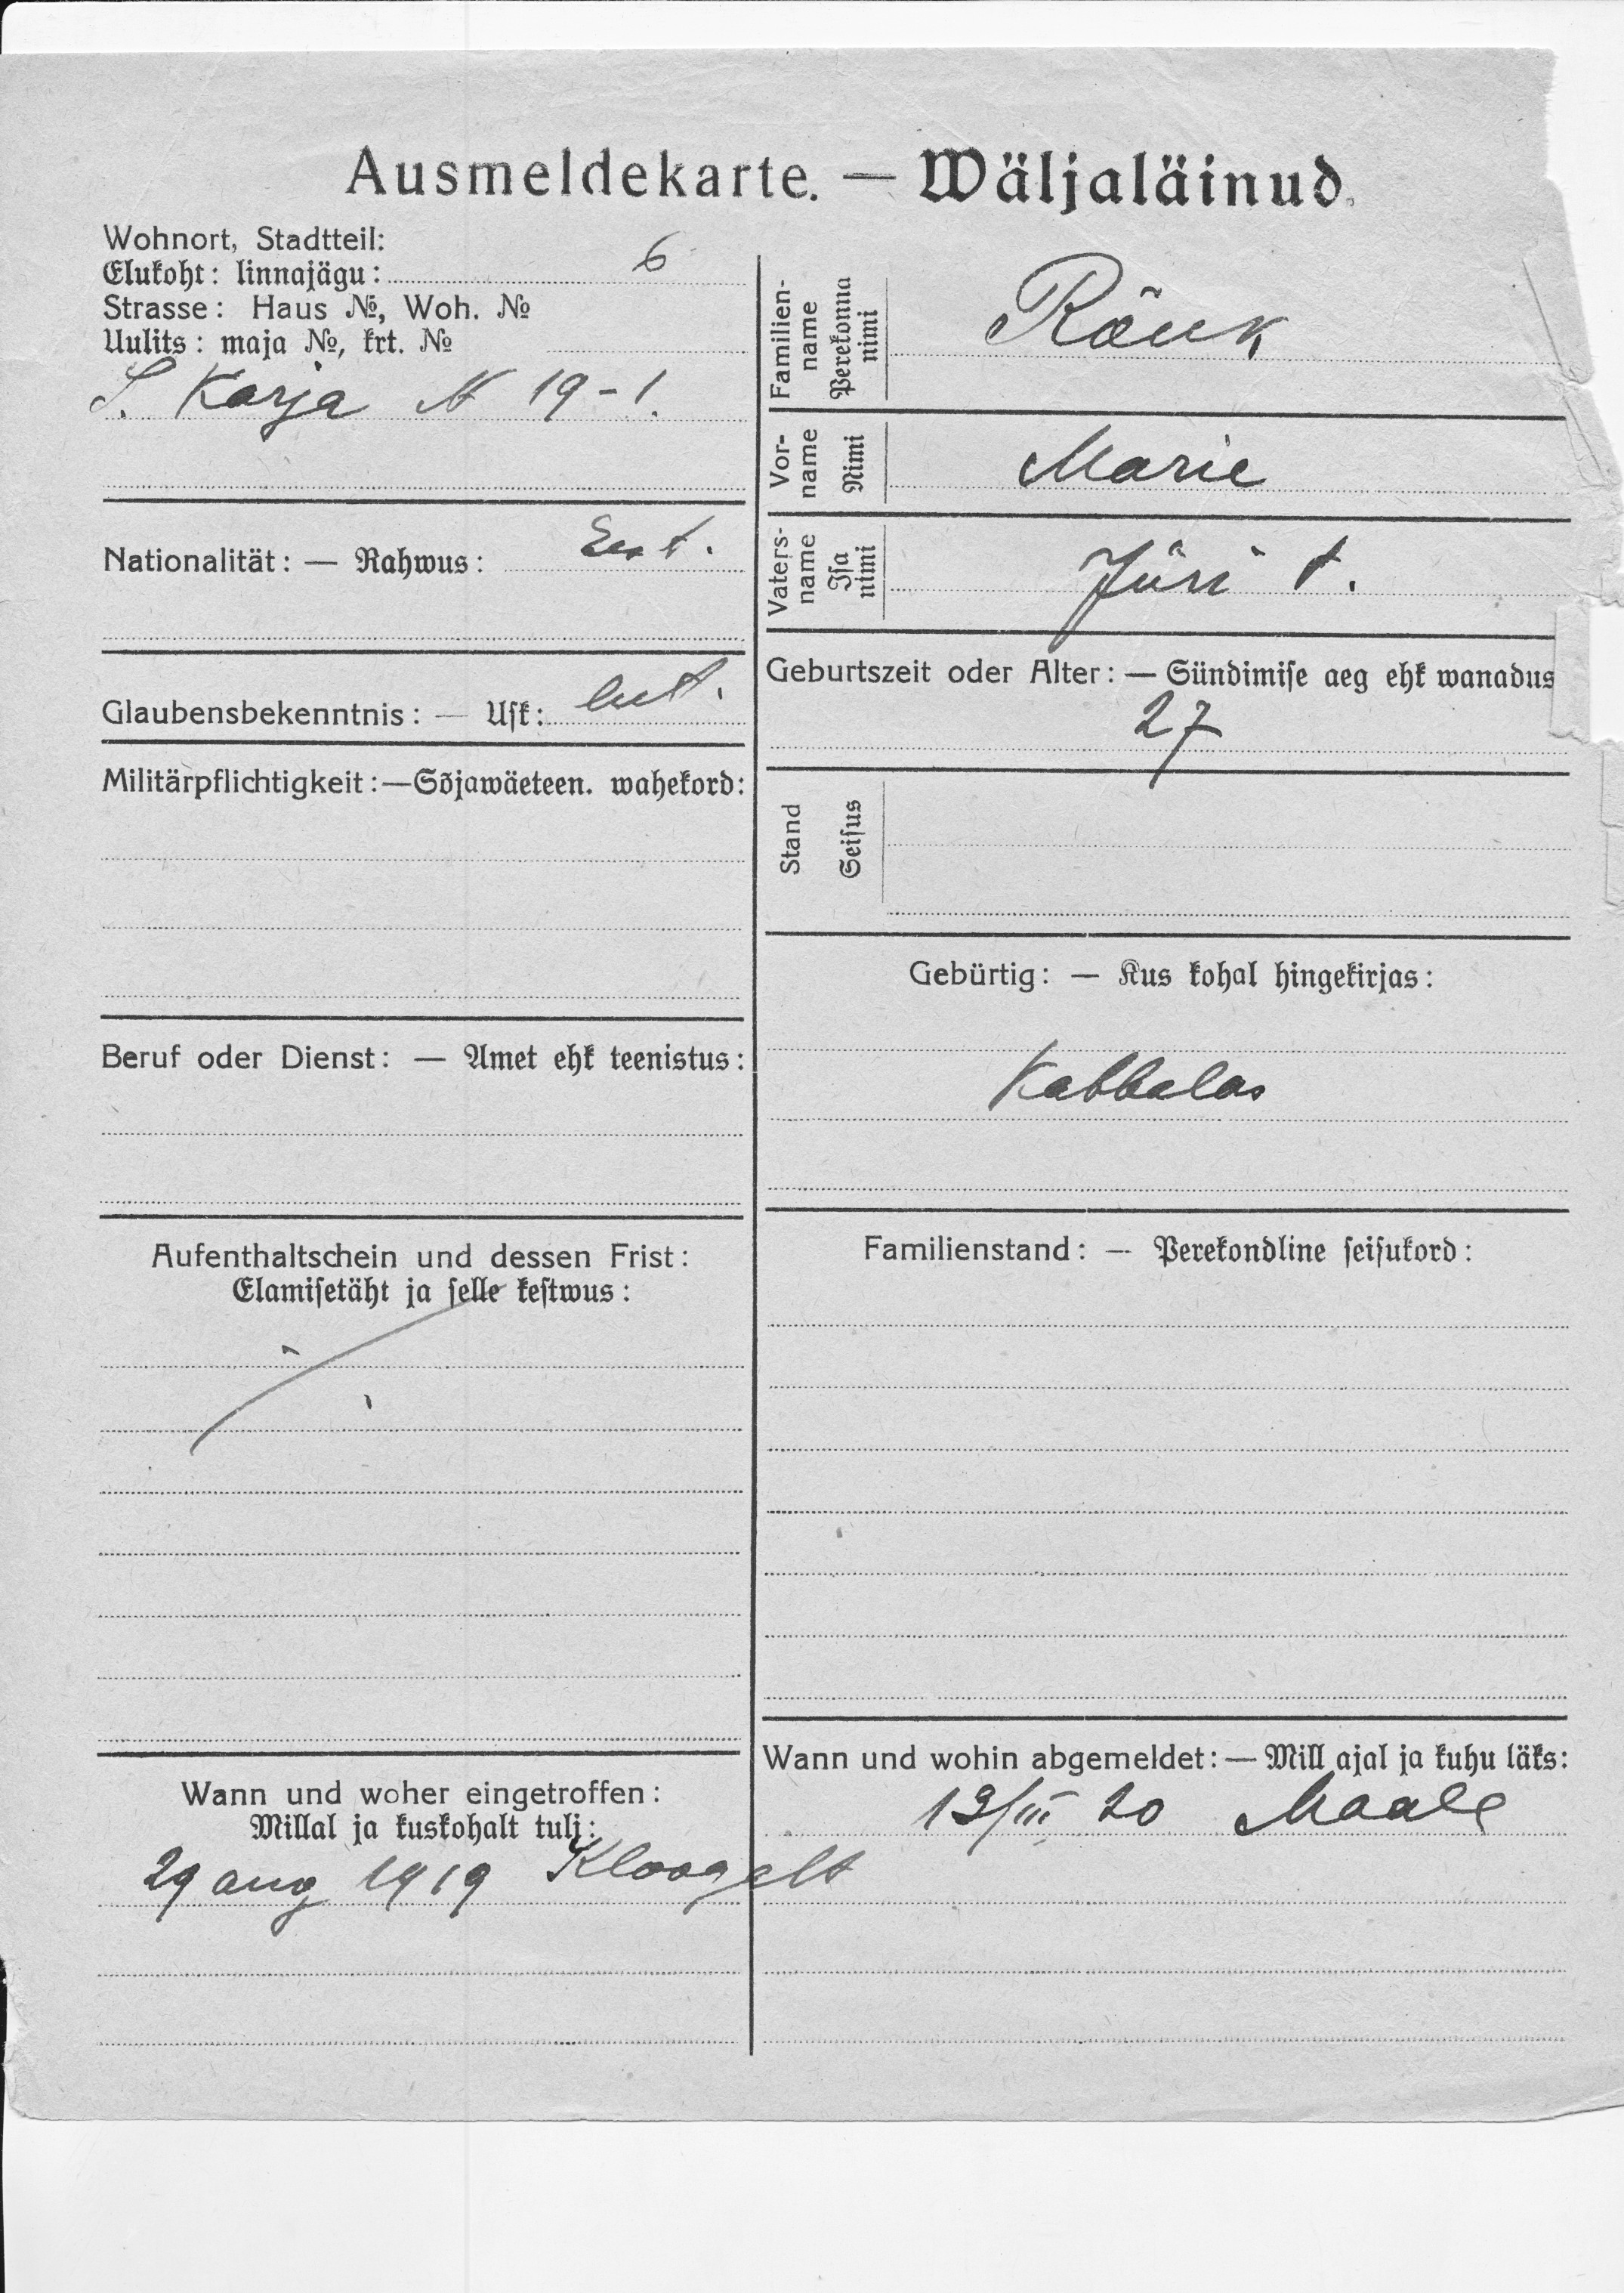 Ausmeldekarte. — Wäljaläinud.
Wohnort, Stadtteil:
Elukoht: linnajägu: 6
Strasse: Haus №, Woh. №
Uulits: maja №, krt. №
S. Karja № 19-1.
Nationalität: — Rahwus: Eest.
Glaubensbekenntnis: — Uſk: lut.
Militärpflichtigkeit:—Sõjawäeteen. wahekord:
Beruf oder Dienst: — Amet ehk teenistus:
Aufenthaltschein und dessen Frist:
Elamiſetäht ja ſelle keſtwus:
Wann und woher eingetroffen:
Millal ja kuskohalt tuli:
29 aug 1919 Kloogalt
Familien-name Perekonna nimi Rõuk
Vor-name Nimi Marie
Vaters-name Iſa nimi Jüri t.
Geburtszeit oder Alter: — Sündimiſe aeg ehk wanadus
27
Stand Seiſus
Gebürtig: — Kus kohal hingekirjas:
Kabbalas
Familienstand: — Perekondline ſeiſukord:
Wann und wohin abgemeldet: — Mill ajal ja kuhu läks:
13/III 20 Maale